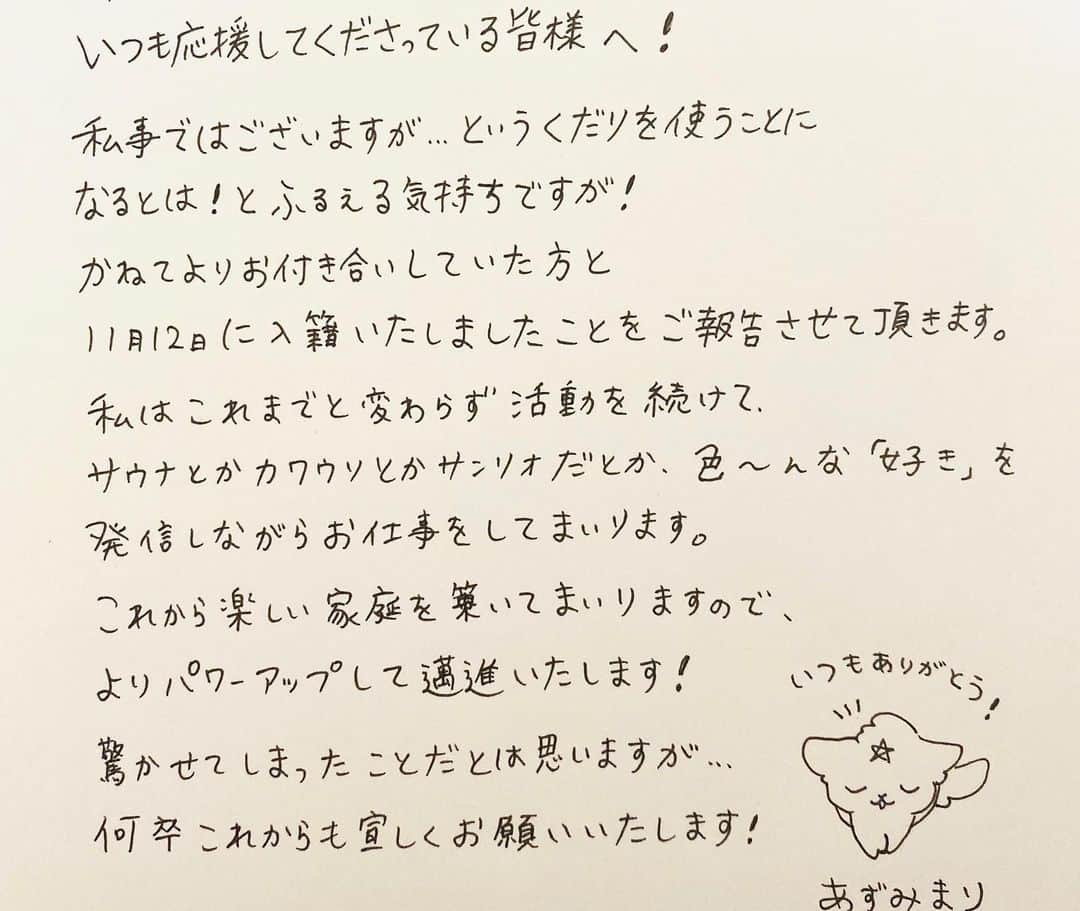 いつも応援してくださっている皆様へ!
私事ではございますが…というくだりを使うことに
なるとは!とふるえる気持ちですが!
かねてよりお付き合いしていた方と
11月12日に入籍いたしましたことをご報告させて頂きます。
私はこれまでと変わらず活動を続けて、
サウナとかカワウソとかサンリオだとか、色〜んな「好き」を
発信しながらお仕事をしてまいります。
これから楽しい家庭を築いてまいりますので、
よりパワーアップして邁進いたします!
驚かせてしまったことだとは思いますが…
何卒これからも宜しくお願いいたします!
いつもありがとう!
あずみまり